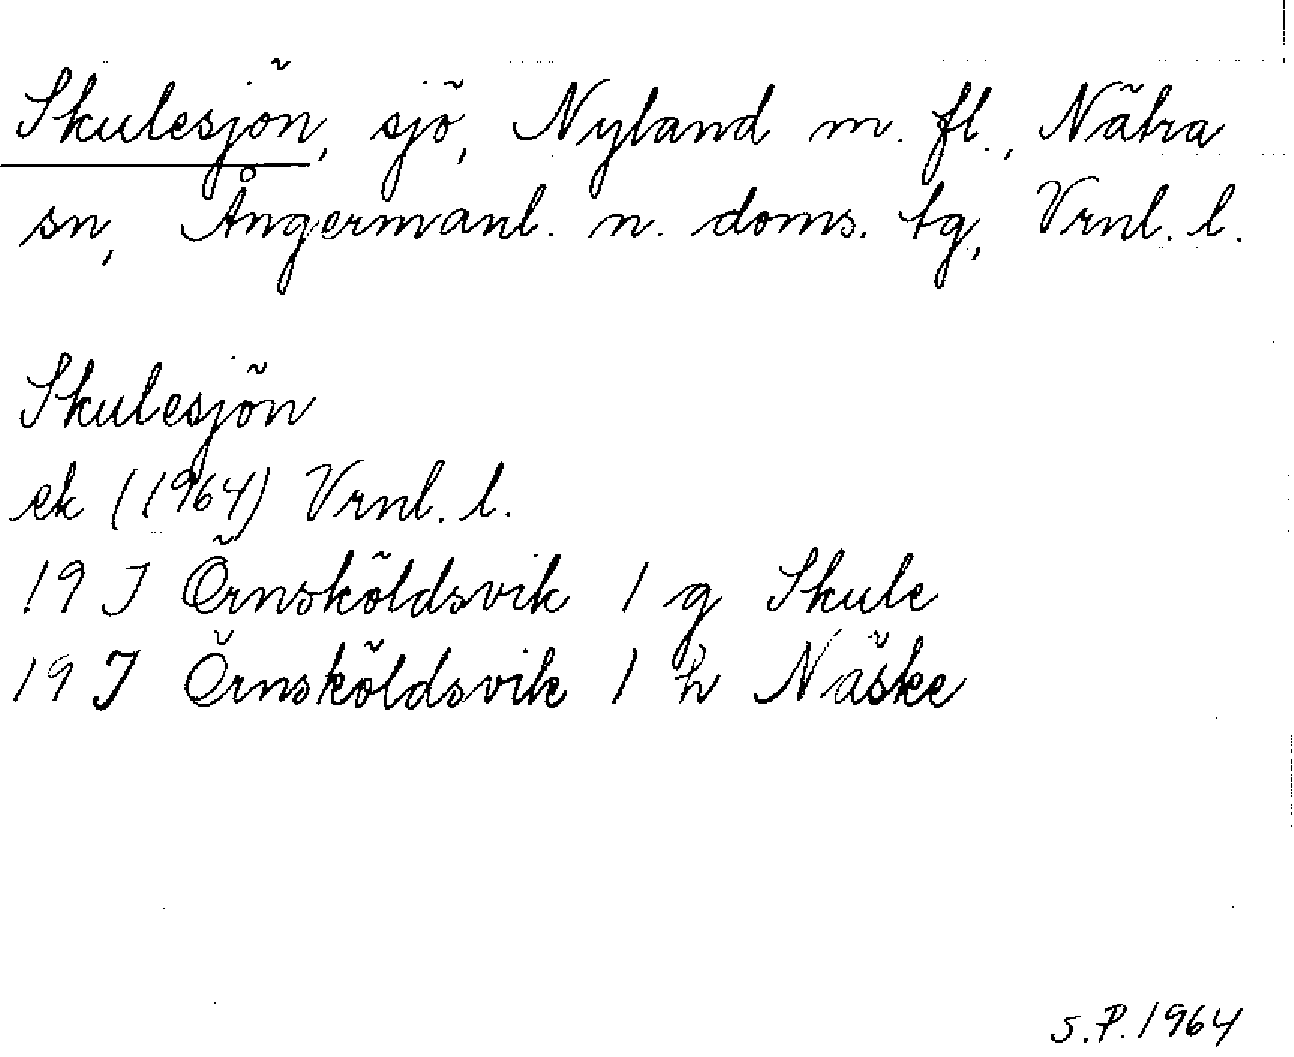 Skulesjön, sjö, Nyland m. fl., Nätra
sn, Ångermanl. n. doms. tg, Vrnl. l.
Skulesjön
ek (1964) Vrnl. l.
19 J Örnsköldsvik 1 g Skule
19 J Örnsköldsvik 1 h Näske
S.P. 1964